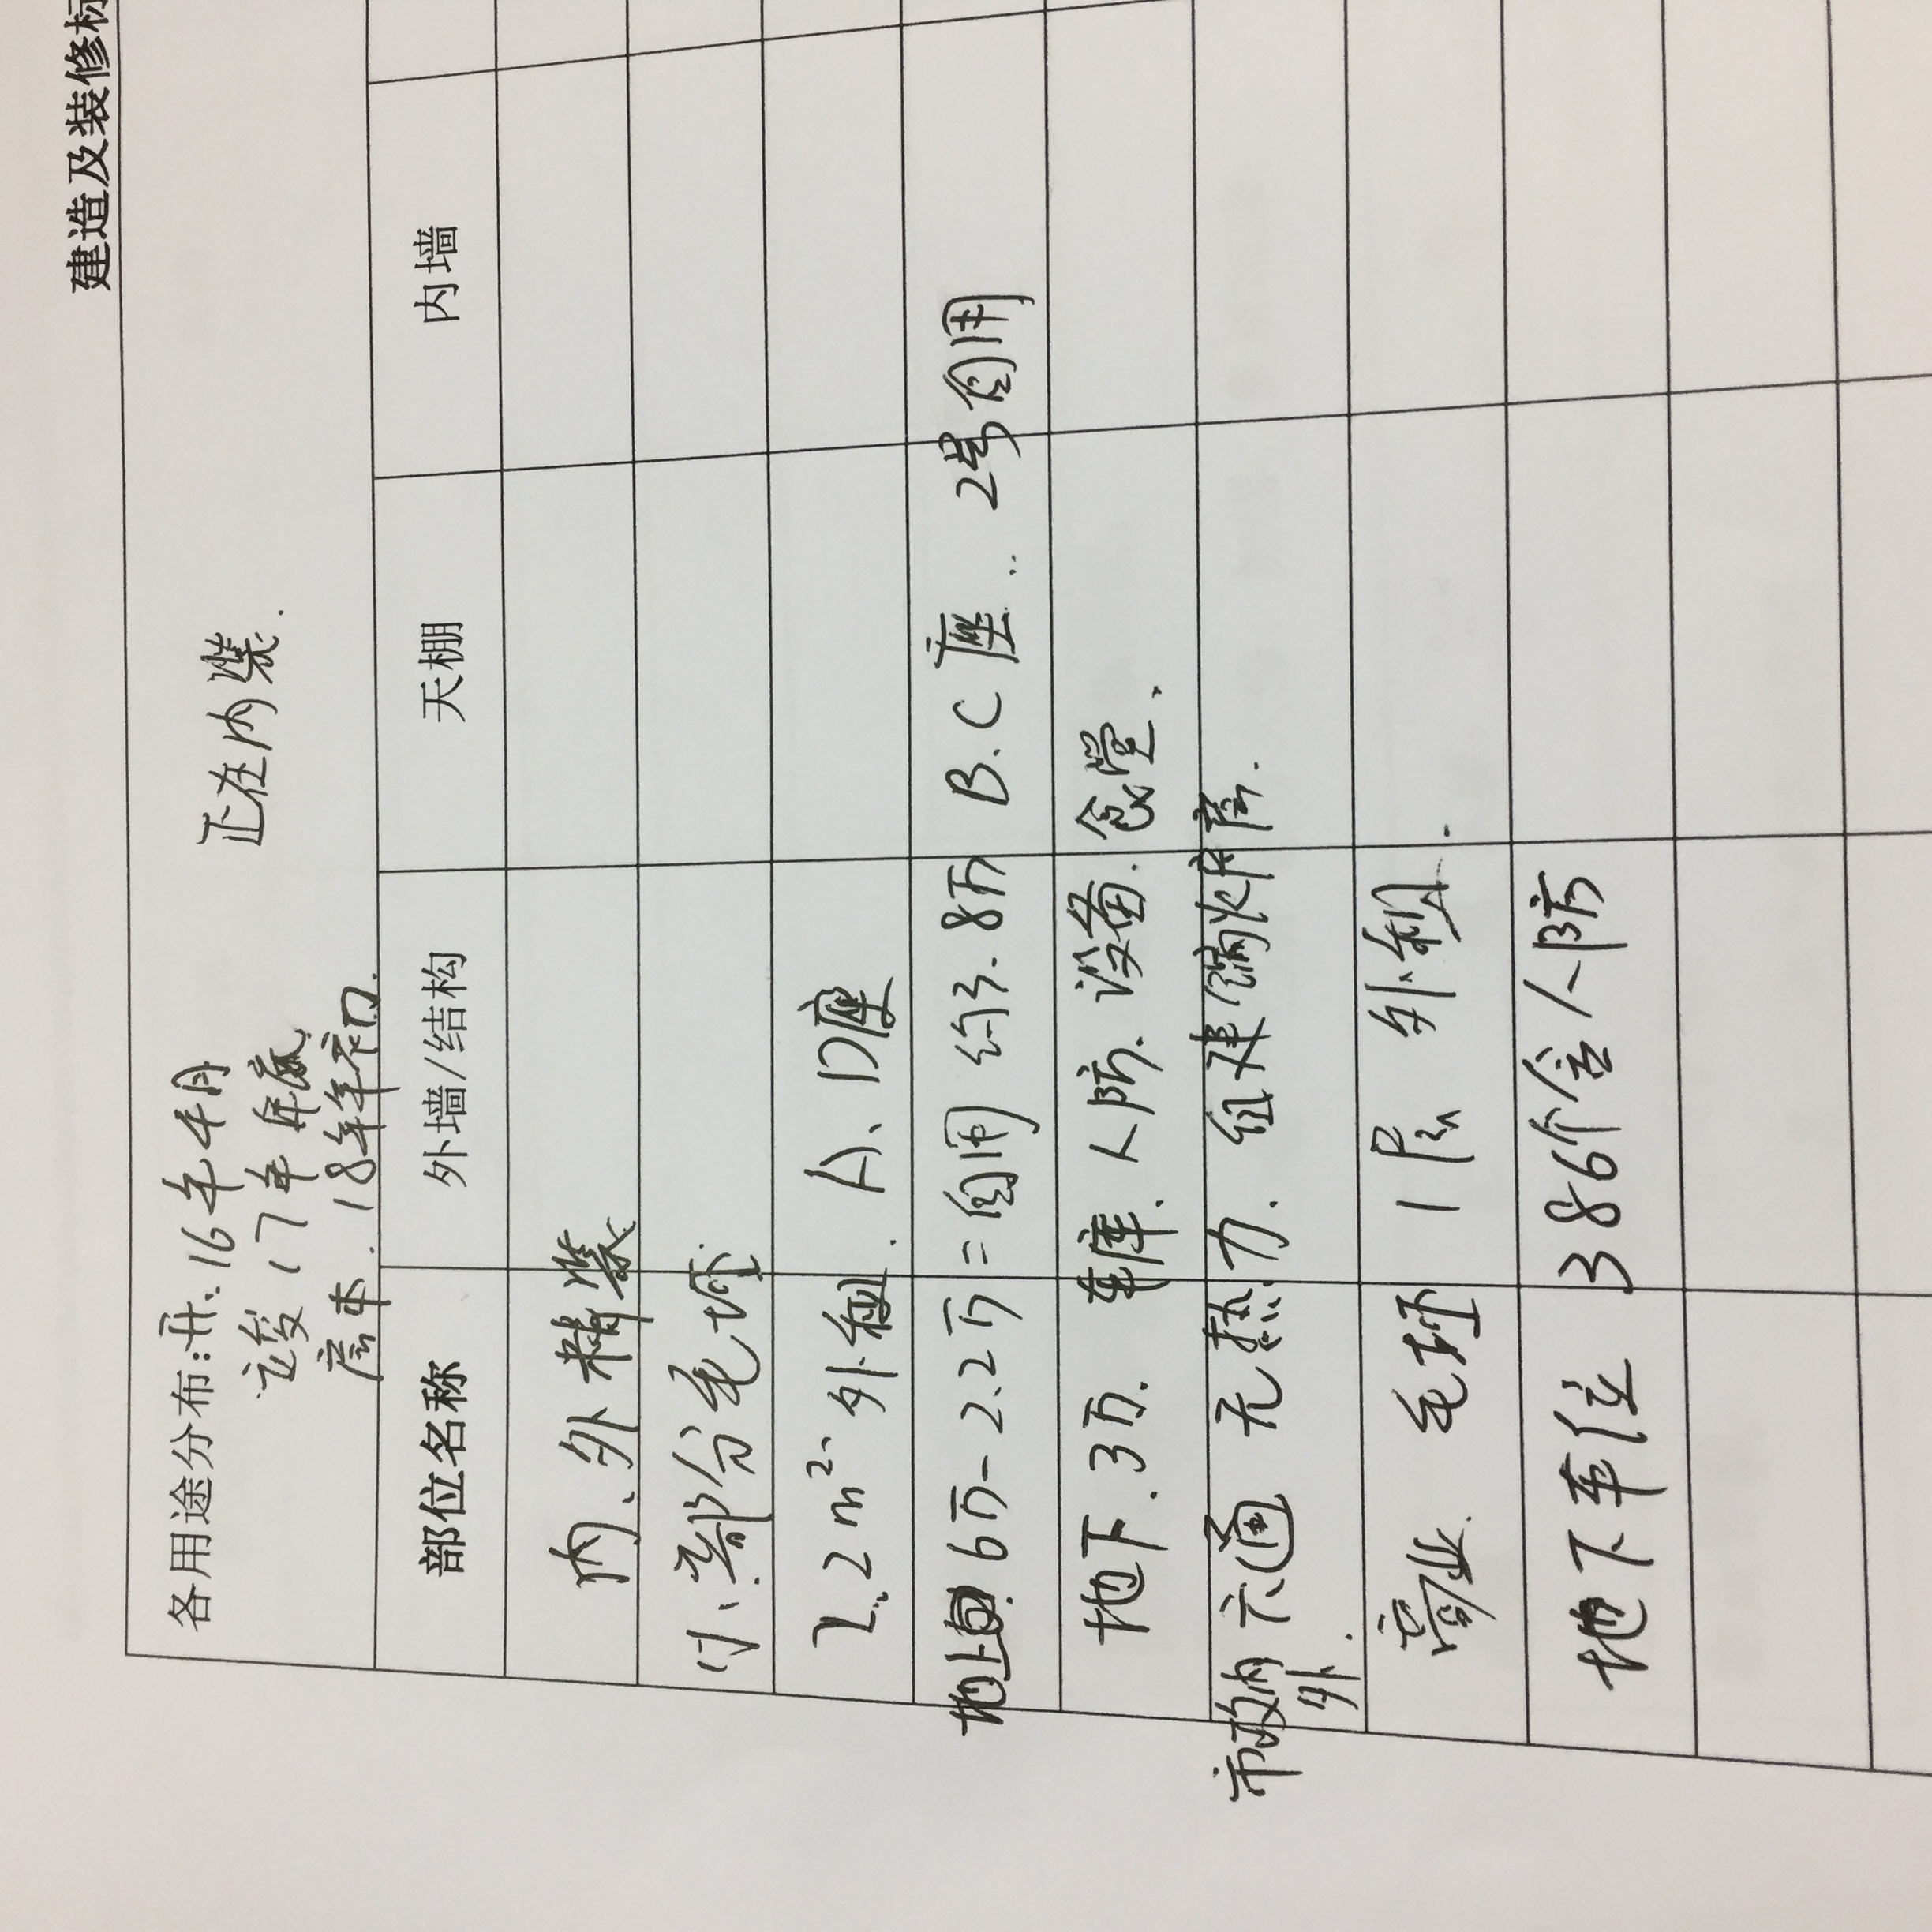 建造及装修标
各用途分布:开、16年4月 正在内装.
竣 17年年底
底本. 18年年初
部位名称 外墙/结构 天棚 内墙
内、外精装
小部分毛坯
2.2m² 外租. A、D座
地上 6万-2.2万=自用 约3.8万 B.C座.. 2号自用
地下.3万. 车库.人防.设备.食堂.
市政内六通 无热力. 自建锅炉房.
外.
商业. 毛坯 1层 外租.
地下车位 386个含人防